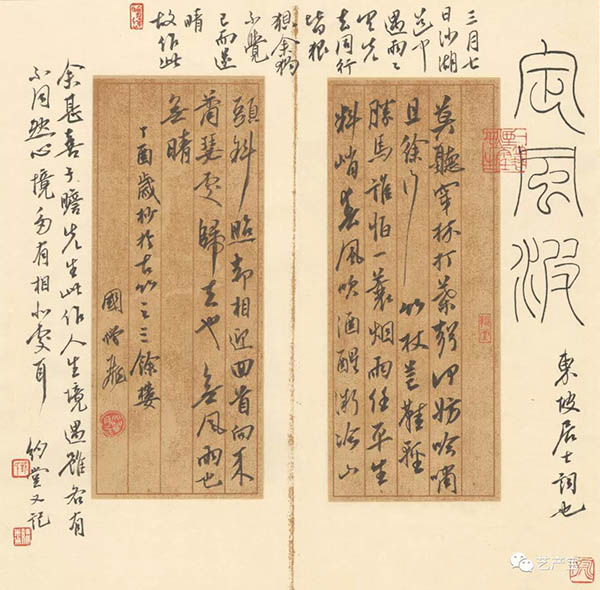 定風波
東坡居士詞也
三月七
日沙湖
道中
遇雨雨
具先
去同行
皆狼
狽余獨
不覺
已而遂
晴
故作此
莫聽穿林打葉聲何妨吟嘯
且徐行竹杖芒鞋輕
勝馬誰怕一蓑烟雨任平生
料峭春風吹酒醒冷山
頭斜照却相迎回首向來
蕭瑟處歸去也無風雨也
無晴
丁酉歲杪於古竹之三餘樓
國
余甚喜子瞻先生此作人生境遇雖各有
不同然心境多有相似處耳
堂又記
艺产宝